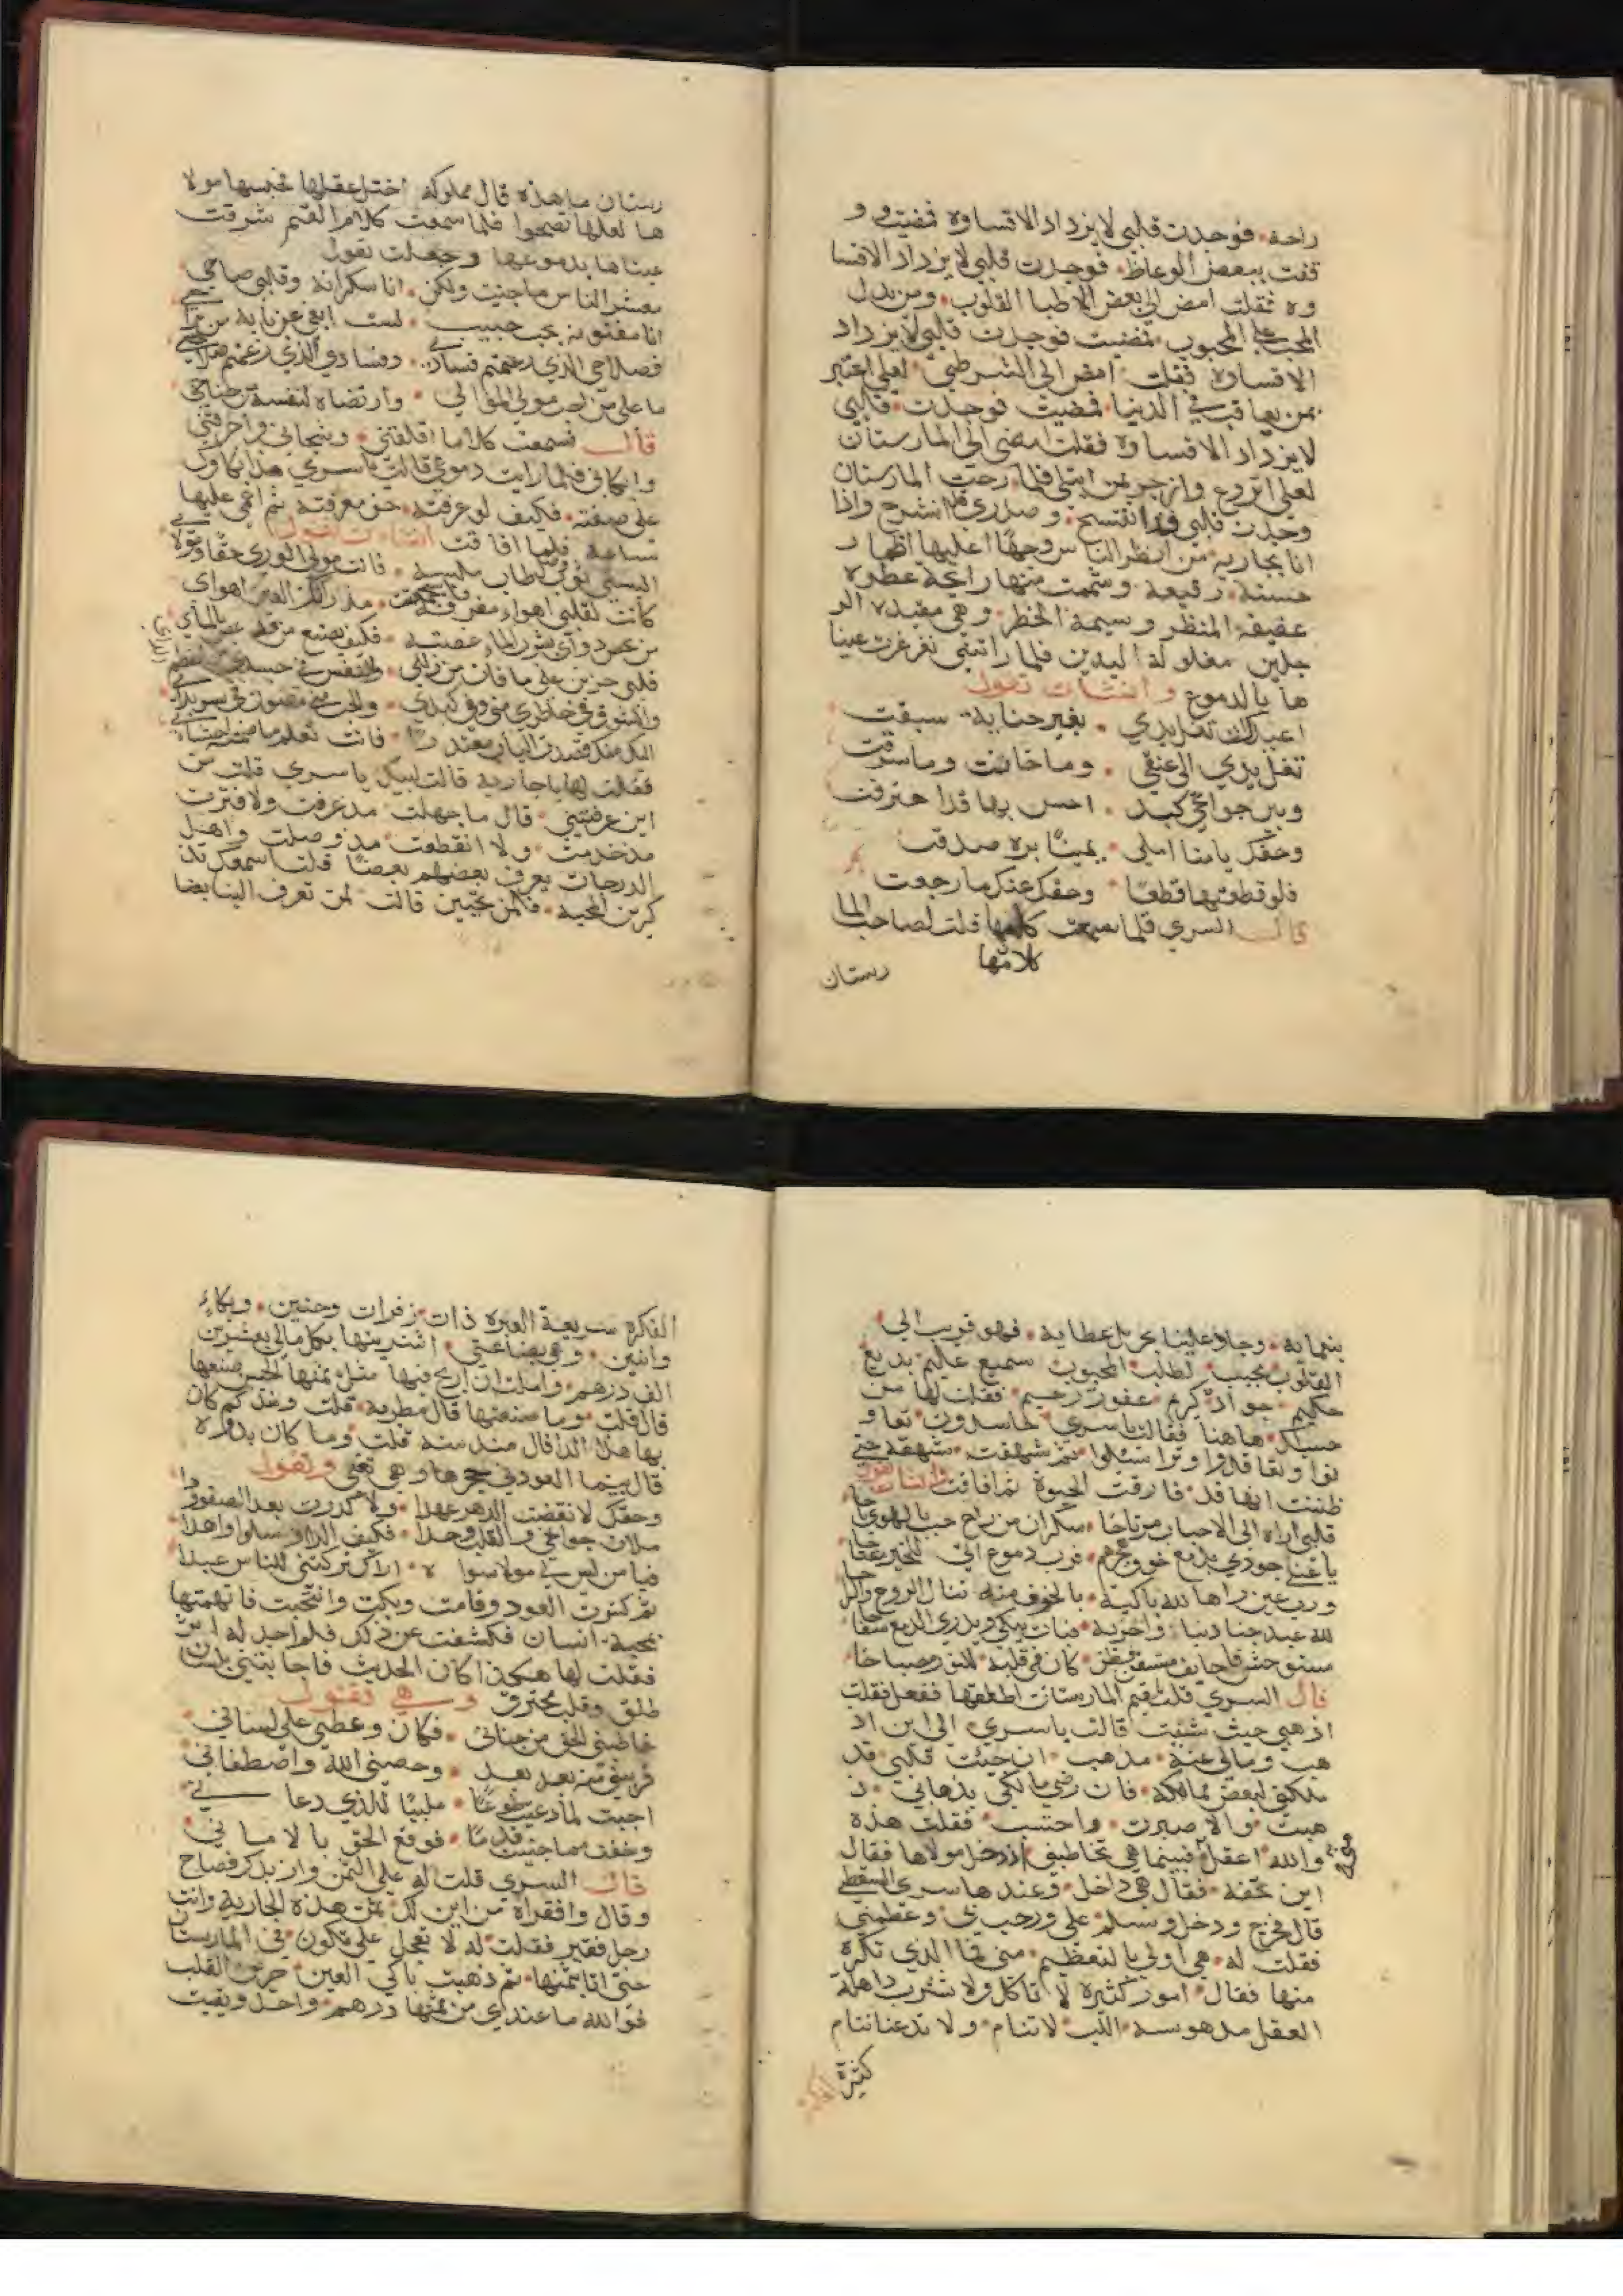 راحة. فوجدت قلبى لا يزداد الا قساوة فمضيت و و
قفت ببعض الوعاظ. فوجدت قلبي لا يزداد الا قسا
وة فقلت امض الى بعض الاطبا القلوب. ومن يدل
المحب على المحبوب. فمضيت فوجدت قلبي لا يزداد
الا قساوة فقلت امض الى الشرطي لعلى اعتبر
بمن يعاقب في الدنيا. فمضيت فوجدت. قلبي
لا يزداد الا قساوة فقلت امضى الى المارستان
لعلى اتروع وانزجر بمن ابتلى فلما رحت المارستان
وجدت قلبي قد انفتسح. وصدري قد انشرح واذا
انا بجارية من انظر الناس وجها اعليها اطمار
حسنة. رفيعة وشممت منها رايحة عطره
عفيفة المنظر وسيمة الخطر. وهي مقيدة الر
جلين مغلولة اليدين فلما راتنى تغرغرت عينا
ها بالدموع وانشات تقول
اعيذك ان تغل يدي. بغير جناية سبقت
تغل يدي الى عنقي. وما خانت وما سرقت
وبين جوانحي كبد. احس بها قد احترقت
وحقك يا منا املى. يمينا بره صدقت
فلو قطعتها قطعا. وحقك عنك ما رجعت
قال السري فلما سمعت كلامها قلت لصاحب الما
كلامها
رستان
رستان ما هذه قال مملوكة اختل عقلها فحبسها مولا
ها لعلها تصحوا فلما سمعت كلام القيم شرقت
عيناها بدموعها وجعلت تقول
معشر الناس ما جنيت ولكن. انا سكرانة وقلبي صاحي
انا مفتونة بحب حبيب. لست ابغي عن بابه من براحي
فصلاحي الذي زعمتم فسادي. وفسادي الذي زعمتم صلاحي
ما على من احب مولى الموالي. وارتضاه لنفسه من جناح
قال فسمعت كلاما اقلقني. وشجاني واحرقني
وابكاني فلما رايت دموعي قالت يا سري هذا بكاوك
على صفته. فكيف لو عرفته. حق معرفته ثم اغمي عليها
ساعة فلما افاقت انشات تقول
البستني ثوب وصل طاب ملبسه. فانت مولى الورى حقا ومولائي
كانت لقلبي اهواء مفرقة فاستجمعت. مذ راتك العين اهوائ
من غص داوى بشرب الماء غصته. فكيف يصنع من قد غص بالمائ
قلبى حزين على ما فات من زللي. والنفس في جسدي من اعظم الدائ
والشوق في خاطري منى وفي كبدي. والحب مني مصون في سويدائ
اليك منك قصدت الباب معتذرا. فانت تعلم ما ضمته احشائ
فقلت لها يا جارية قالت لبيك يا سري قلت من
اين عرفتيني. قال ما جهلت مذ عرفت ولا فترت
مذ خدمت. ولا انقطعت مذ وصلت واهل
الدرجات يعرف بعضهم بعضا قلت اسمعك تذ
كرين المحبه. فلمن تحبين قالت لمن تعرف الينا بضا
بنعمايه. وجاد علينا بجزيل عطايه. فهو قريب الى
القلوب مجيب لطلب المحبوب سميع عليم بديع
حكيم. جواد كريم غفور رحيم. فقلت لها من
حبسك. هاهنا فقالت يا سري حاسدون تعاو
نوا وتعاقدوا وتراسلوا ثم شهقت. شهقة حتى
ظننت انها قد فارقت الحيوة ثم افاقت وانشات تقول
قلبي اراه الى الاحباب مرتاحا. سكران من راح حب بالهوى باحا
يا عين جودي بدمع خوف هجرهم. فرب دموع اتى للخير مفتاحا
ورب عين راها الله باكية. بالخوف منه تنال الروح والراحا
لله عبد جنا ذنبا واحزنه. فبات يبكي ويذري الدمع سفاحا
مستوحش خايف مستيقظ فطن. كان في قلبه للنور مصباحا
قال السري قلت لقيم المارستان اطلقها ففعل فقلت
اذهبي حيث شئت قالت يا سري الى اين اذ
هب ومالي عنه. مذهب. ان حبيب قلبي قد
ملكني لبعض مماليكه. فان رضي مالكي بذهابي. ذ
هبت. والا صبرت. واحتسبت. فقلت هذه
والله اعقل مني فبينما هي تخاطبني اذ دخل مولاها فقال
اين تحفة. فقال هي داخل. وعندها سري السقطي
قال فخرج ودخل وسلم علي ورحب بي وعظمني
فقلت له. هي اولى بالتعظيم. منى فما الذي تكره
منها فقال. امور كثيرة لا تاكل ولا تشرب ذاهلة
العقل مدهوسة اللب لا تنام. ولا تدعنا ننام
كثيرة الفكره
الفكره سريعة العبره ذات. زفرات وحنين. وبكاء
وانين. وهي بضاعتي. اشتريتها بكل مالي بعشرين
الف درهم. واملت ان اربح فيها مثل ثمنها لحسن صنعتها
قال قلت. وما صنعتها قال مطربة. قلت ومنذ كم كان
بها هذا الدا قال منذ سنه قلت وما كان بدوره
قال بينما العود في حجرها وهي تغني وتقول
وحقك لا نقضت الدهر عهدا. ولا كدرت بعد الصفو ودا
ملات جوانحي والقلب وجدا. فكيف الذ او اسلوا واهدا
فيا من ليس لي مولا سواه. اراك تركتني للناس عبدا
ثم كسرت العود وقامت وبكت وانتحبت فاتهمتها
بمحبة. انسان فكشفت عن ذلك فلم اجد له اثر
فقلت لها هكذا كان الحديث فاجابتني بلسان
طلق وقلب محترق وهي تقول
خاطبني الحق من جناني. فكان وعظي على لساني
قربني منه بعد بعد. وخصني الله واصطفاني
اجبت لما دعيت طوعا. ملبيا للذي دعاني
وخفت مما جنيت قدما. فوقع الحق بالاماني
قال السري قلت له علي الثمن وازيدك فصاح
وقال وافقراه من اين لك ثمن هذه الجارية وانت
رجل فقير فقلت له لا تعجل علي تكون في المارستان
حتى اتا بثمنها. ثم ذهبت باكي العين. حزين القلب
فوالله ما عندي من ثمنها درهم. واحد وبقيت